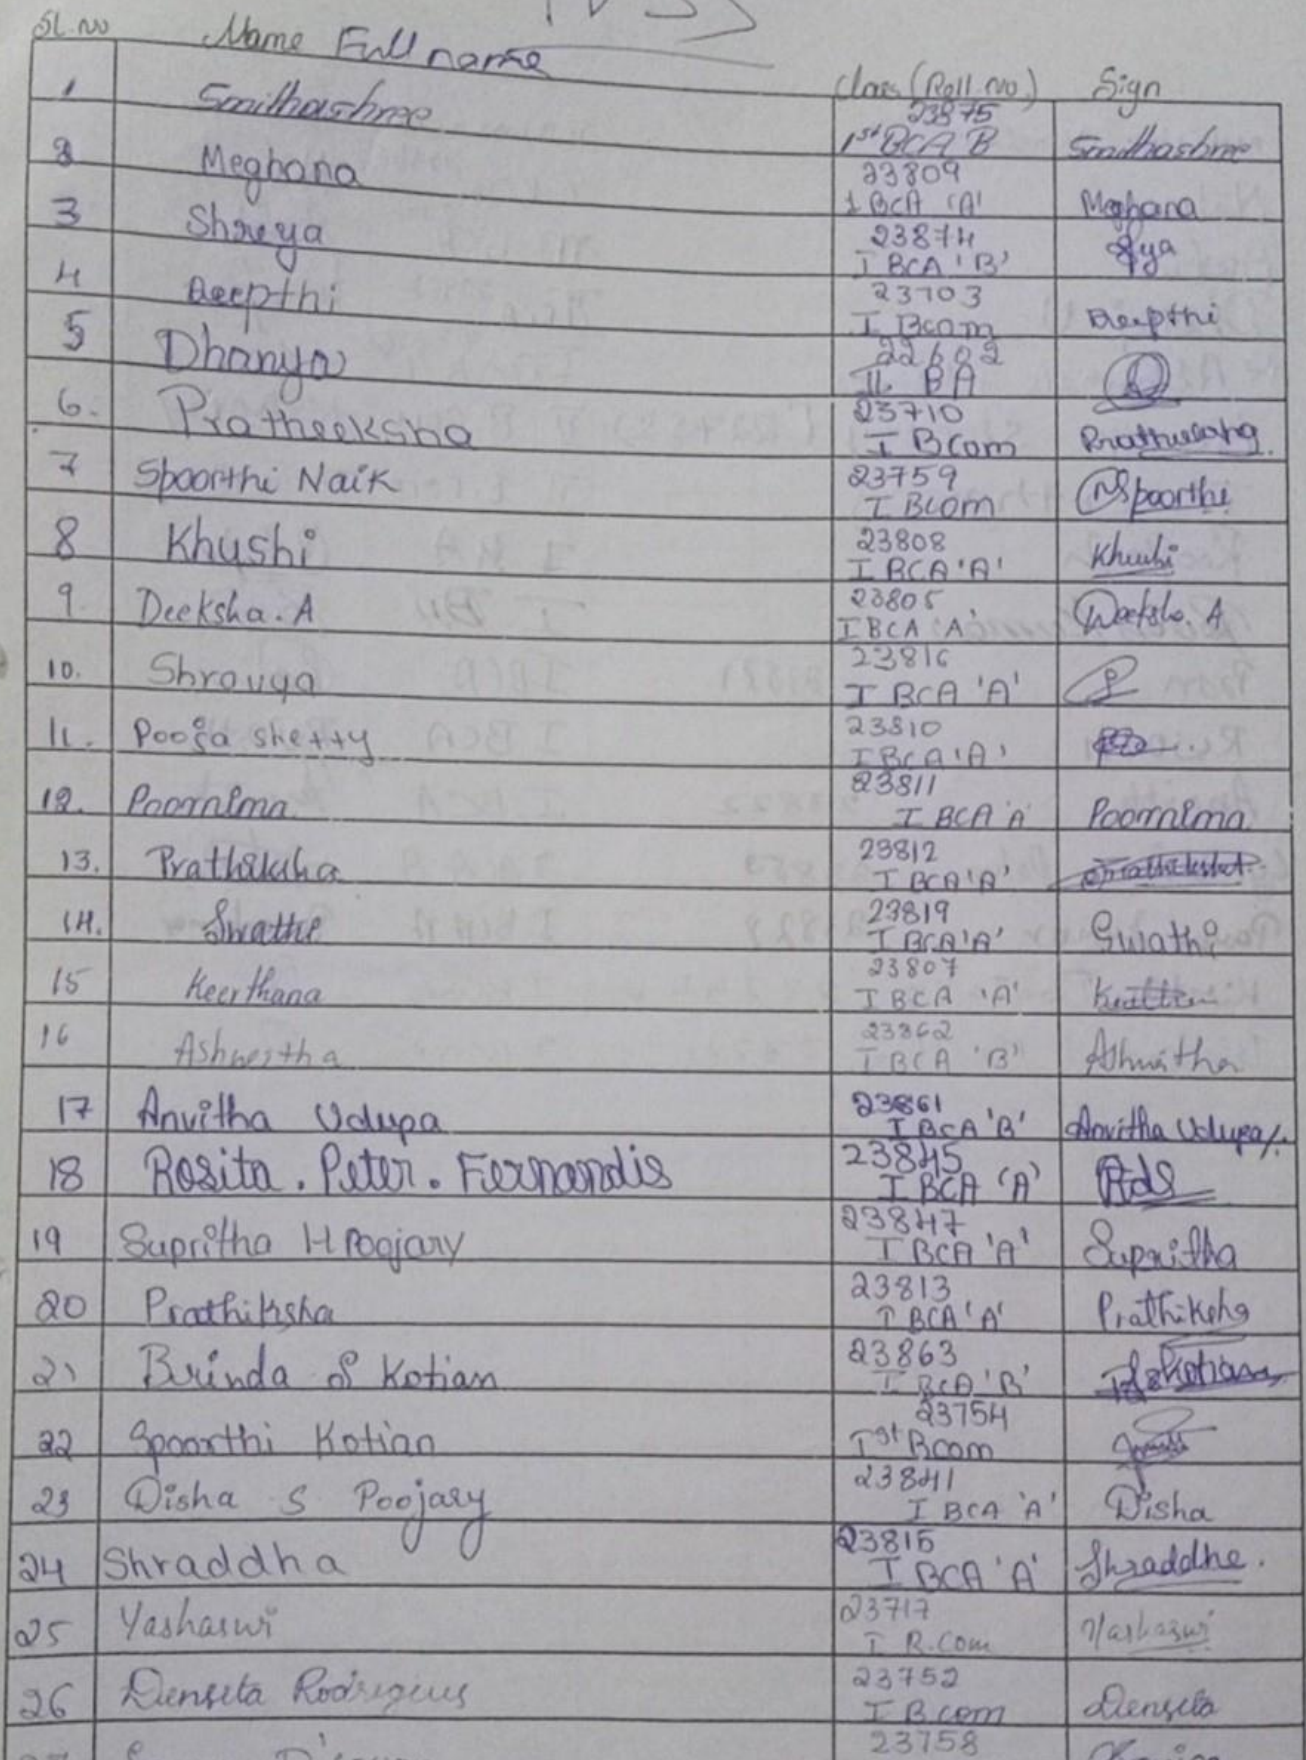 Sl. no Name Full name Class (Roll no.) Sign
1 Smithashree 23875 1st BCA B Smithashree
2 Meghana 23809 1 BCA 'A' Meghana
3 Shreya 23874 I BCA 'B' Sya
4 Deepthi 23703 I Bcom Deepthi
5 Dhanya 22602 II BA
6. Pratheeksha 23710 I BCom Pratheeksha
7 Spoorthi Naik 23759 I BCom Spoorthi
8 Khushi 23808 I BCA 'A' Khushi
9. Deeksha. A 23805 I BCA 'A' Deeksha. A
10. Shravya 23816 I BCA 'A'
11. Pooja shetty 23810 I BCA 'A'
12. Poornima 23811 I BCA 'A' Poornima
13. Prathiksha 23812 I BCA 'A' Prathiksha
14. Swathi 23819 I BCA 'A' Swathi
15 Keerthana 23807 I BCA 'A'
16 Ashwitha 23862 I BCA 'B' Ashwitha
17 Anvitha Udupa 23861 I BCA 'B' Anvitha Udupa
18 Rosita. Peter. Fernandis 23845 I BCA 'A'
19 Supritha H Poojary 23847 I BCA 'A' Supritha
20 Prathiksha 23813 I BCA 'A' Prathiksha
21 Brinda S Kotian 23863 I BCA 'B' Kotian
22 Spoorthi Kotian 23754 Ist Bcom
23 Disha S Poojary 23841 I BCA 'A' Disha
24 Shraddha 23815 I BCA 'A' Shraddha.
25 Yashaswi 23717 I B.Com Yashaswi
26 Denseta Rodrigues 23752 I Bcom Denseta
23758